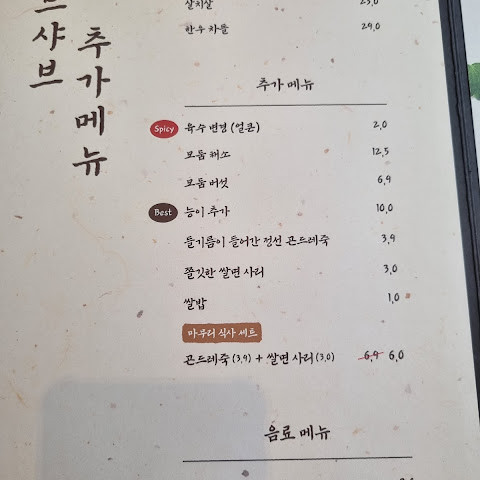 드샤브
추가메뉴
살치살 23,0
한우 차돌 29,0
추가 메뉴
Spicy 육수 변경 (얼큰) 2,0
모둠 채소 12,5
모둠 버섯 6,9
Best 능이 추가 10,0
들기름이 들어간 정선 곤드레죽 3,9
쫄깃한 쌀면 사리 3,0
쌀밥 1,0
마무리 식사 세트
곤드레죽 (3,9) + 쌀면 사리 (3,0) 6,9 6,0
음료 메뉴